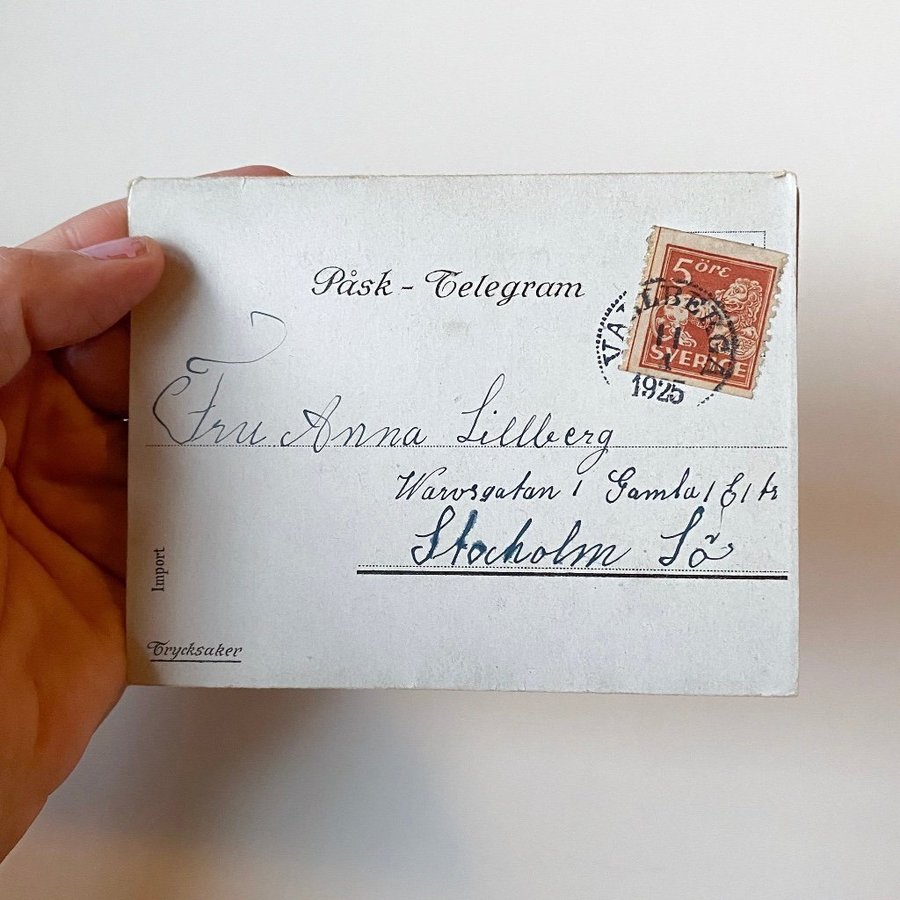 Påsk-Telegram
5 ÖRE
SVERIGE
11
1925
Fru Anna Lillberg
Warvsgatan 1 Gamla 1 61 tr
Stocholm Sö
Import
Trycksaker